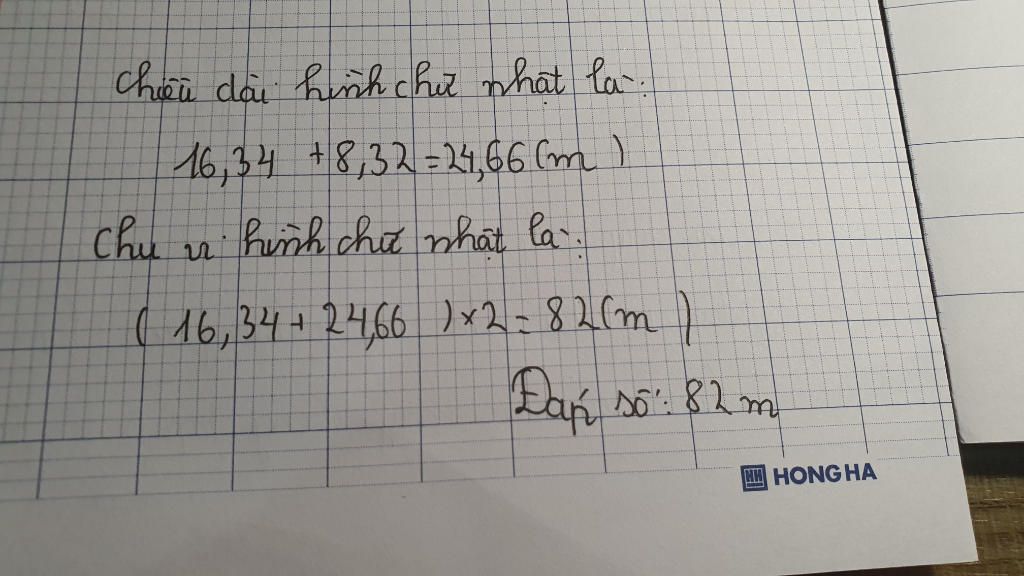 Chiều dài hình chữ nhật là:
16,34 + 8,32 = 24,66 (m)
Chu vi hình chữ nhật là:
( 16,34 + 24,66 ) x 2 = 82 (m)
Đáp số: 82 m
HH HONG HA